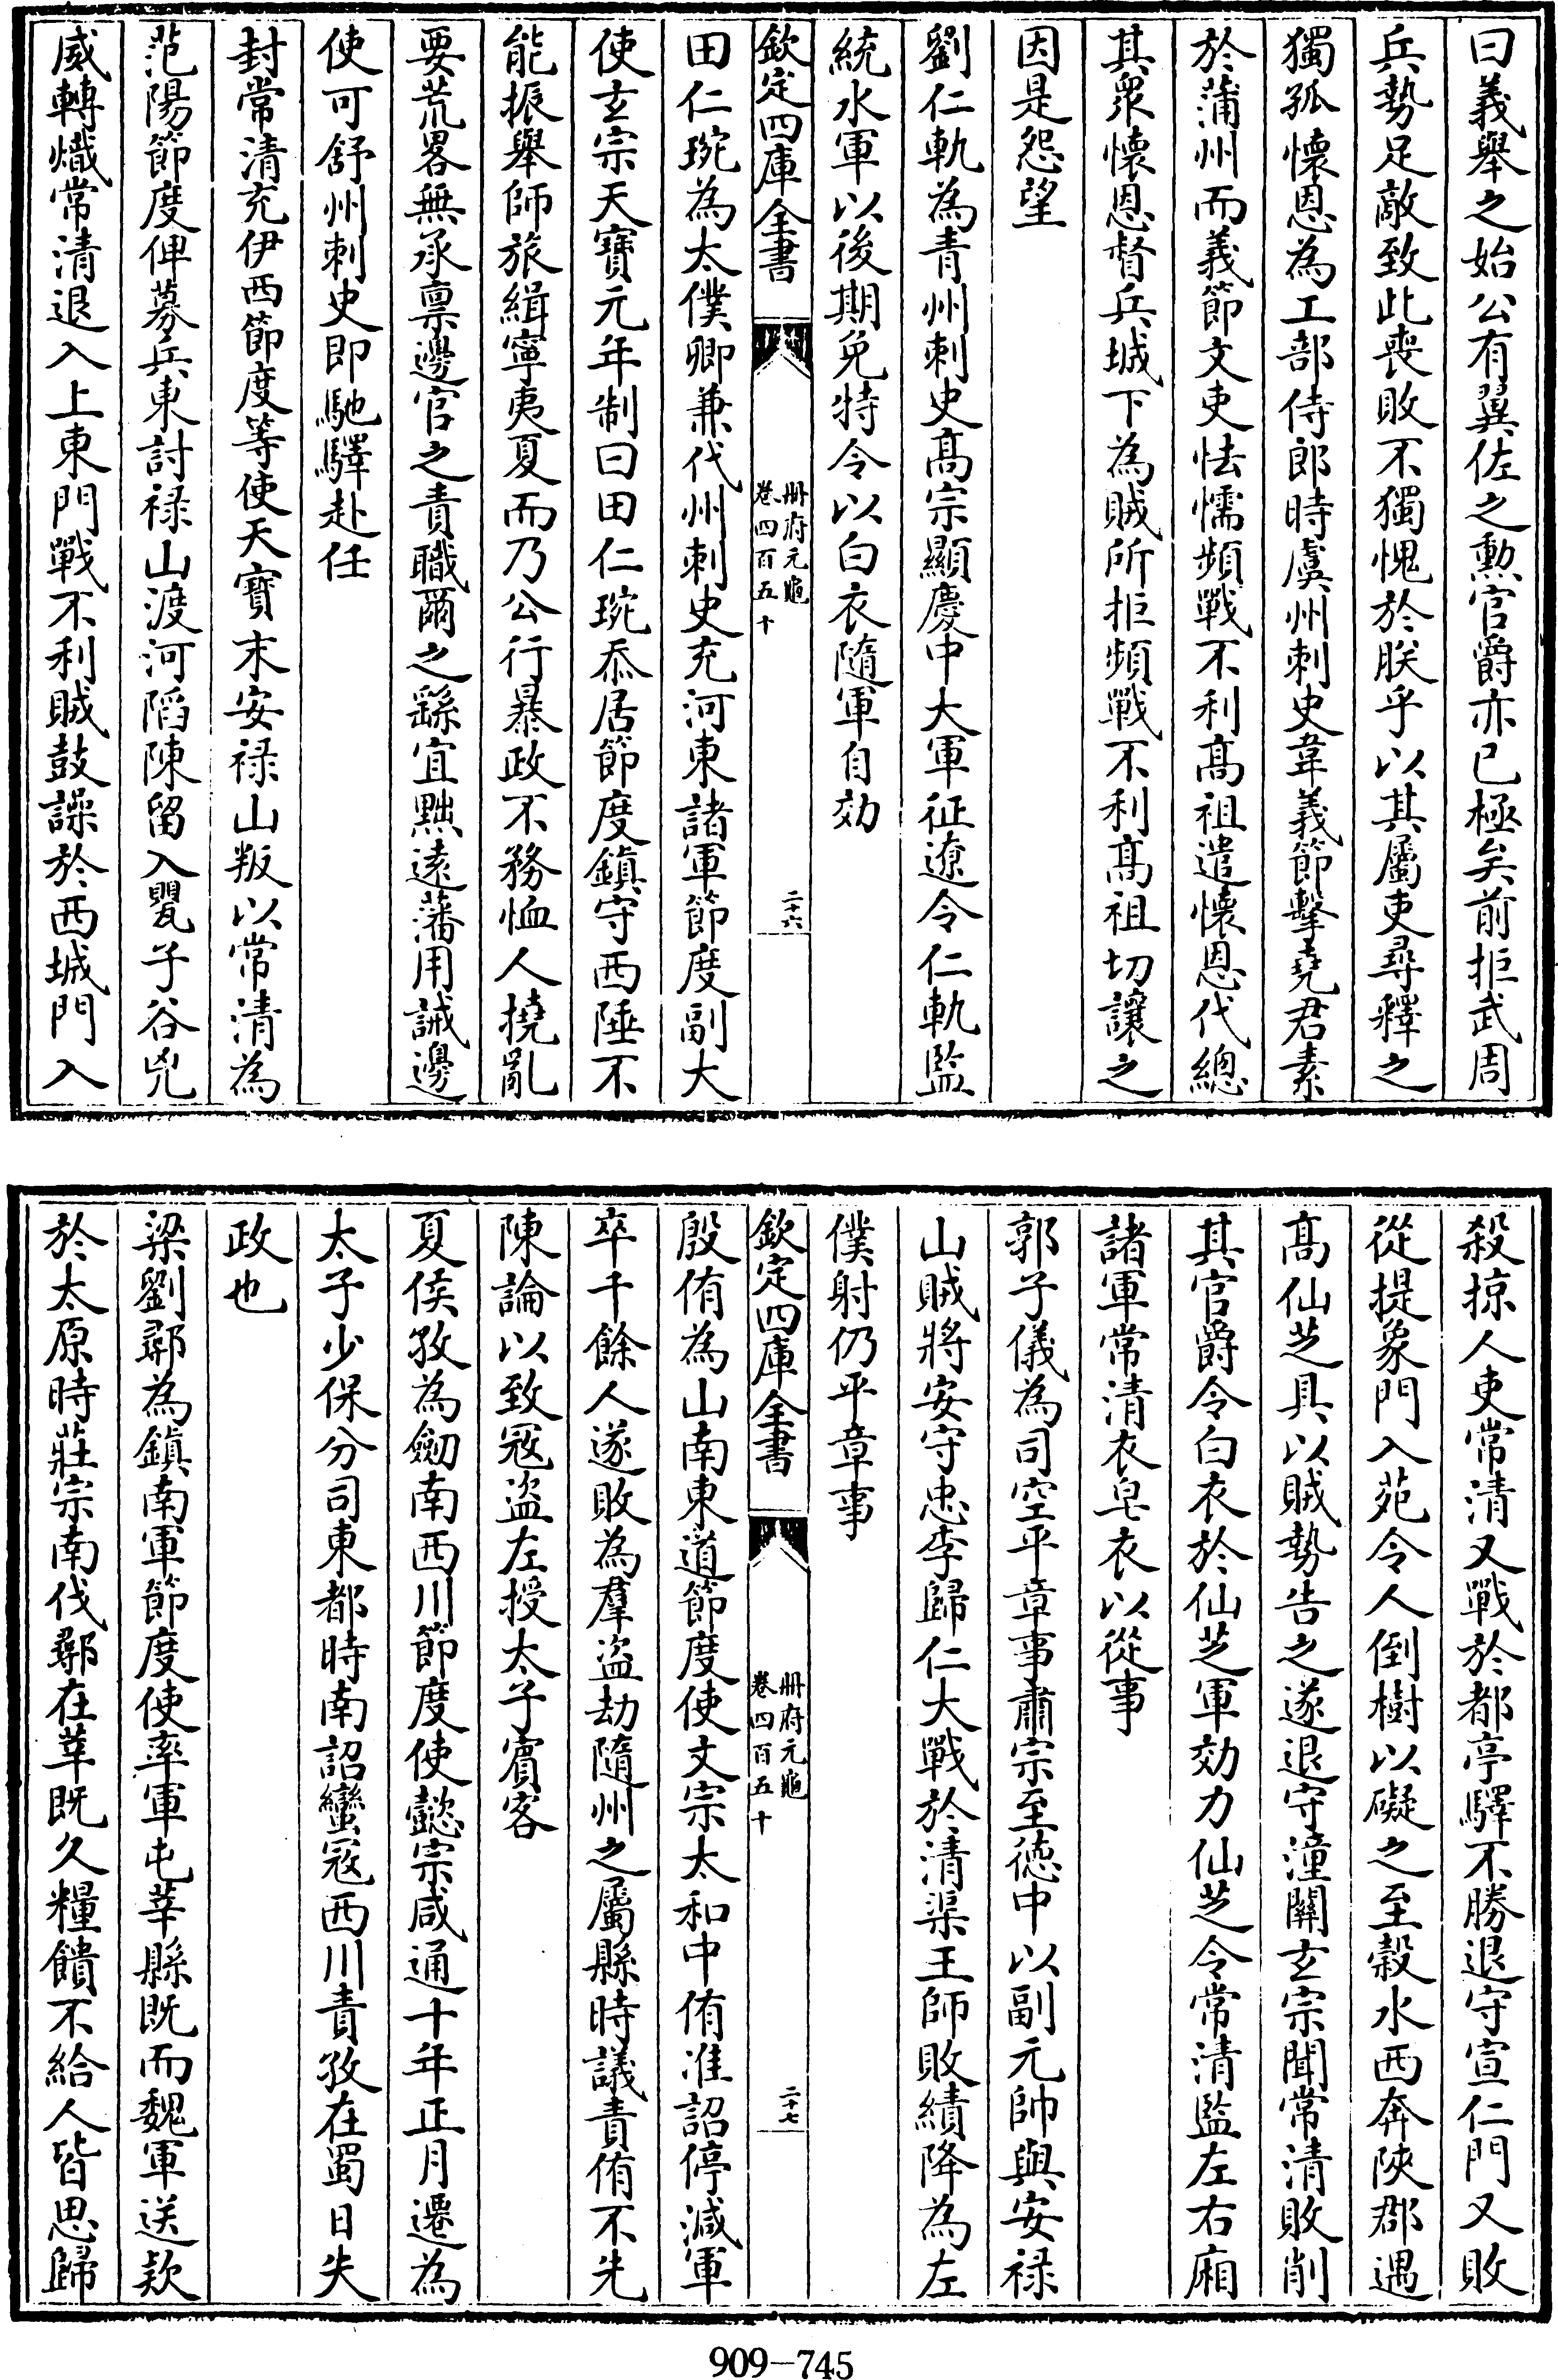 曰義舉之始公有翼佐之勲官爵亦已極矣前拒武周
兵勢足敵致此喪敗不獨愧於朕乎以其屬吏尋釋之
獨孤懷恩為工部侍郎時虞州刺史韋義節擊堯君素
於蒲州而義節文吏怯懦頻戰不利髙祖遣懷恩代總
其衆懷恩督兵城下為賊所拒頻戰不利髙祖切讓之
因是怨望
劉仁軌為青州刺史髙宗顯慶中大軍征遼令仁軌監
統水軍以後期免特令以白衣隨軍自効
欽定四庫全書
冊府元龜
卷四百五十
二十六
田仁琬為太僕卿兼代州刺史充河東諸軍節度副大
使玄宗天寳元年制曰田仁琬忝居節度鎮守西陲不
能振舉師旅緝寧夷夏而乃公行暴政不務恤人撓亂
要荒畧無承禀邊官之責職爾之繇宜黜遠藩用誡邊
使可舒州刺史即馳驛赴任
封常清充伊西節度等使天寳末安禄山叛以常清為
范陽節度俾募兵東討禄山渡河䧟陳留入甖子谷兇
威轉熾常清退入上東門戰不利賊鼓譟於西城門入
殺掠人吏常清又戰於都亭驛不勝退守宣仁門又敗
從提象門入苑令人倒樹以礙之至榖水西奔陜郡遇
髙仙芝具以賊勢告之遂退守潼關玄宗聞常清敗削
其官爵令白衣於仙芝軍効力仙芝令常清監左右廂
諸軍常清衣皂衣以從事
郭子儀為司空平章事肅宗至徳中以副元帥與安禄
山賊將安守忠李歸仁大戰於清渠王師敗績降為左
僕射仍平章事
欽定四庫全書
冊府元龜
卷四百五十
二十七
殷侑為山南東道節度使文宗太和中侑准詔停減軍
卒千餘人遂敗為羣盗劫隨州之屬縣時議責侑不先
陳論以致冦盗左授太子賓客
夏侯孜為劒南西川節度使懿宗咸通十年正月遷為
太子少保分司東都時南詔蠻冦西川責孜在蜀日失
政也
梁劉鄩為鎮南軍節度使率軍屯莘縣既而魏軍送欵
於太原時莊宗南伐鄩在莘既久糧饋不給人皆思歸
909-745